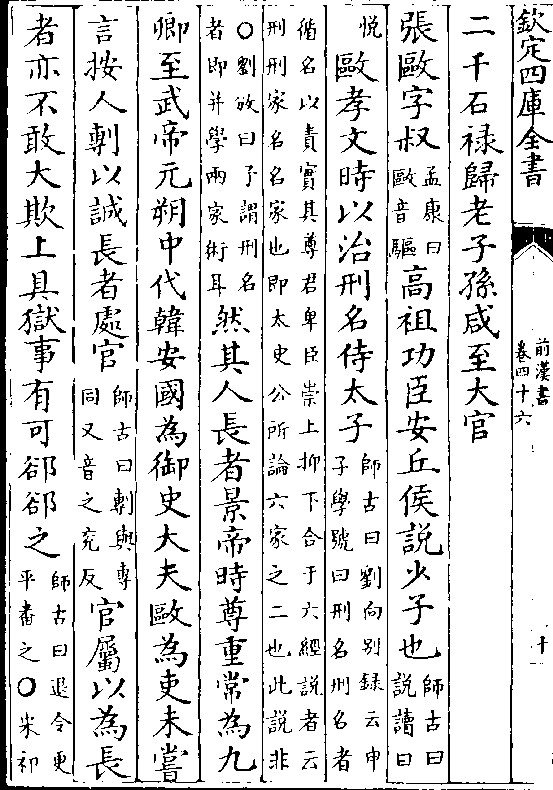 欽定四庫全書
前漢書
卷四十六
十
二千石祿歸老子孫咸至大官
張歐字叔孟康曰歐音驅高祖功臣安丘侯說少子也師古曰說讀曰
悅歐孝文時以治刑名侍太子師古曰劉向别錄云申子學號曰刑名刑名者
循名以責實其尊君卑臣崇上抑下合于六經說者云刑刑家名名家也即太史公所論六家之二也此說非
○劉攽曰予謂刑名者即并學兩家術耳然其人長者景帝時尊重常為九
卿至武帝元朔中代韓安國為御史大夫歐為吏未嘗
言按人剸以誠長者處官師古曰剸與專同又音之兖反官屬以為長
者亦不敢大欺上具獄事有可郤郤之師古曰退令更平畨之○宋祁